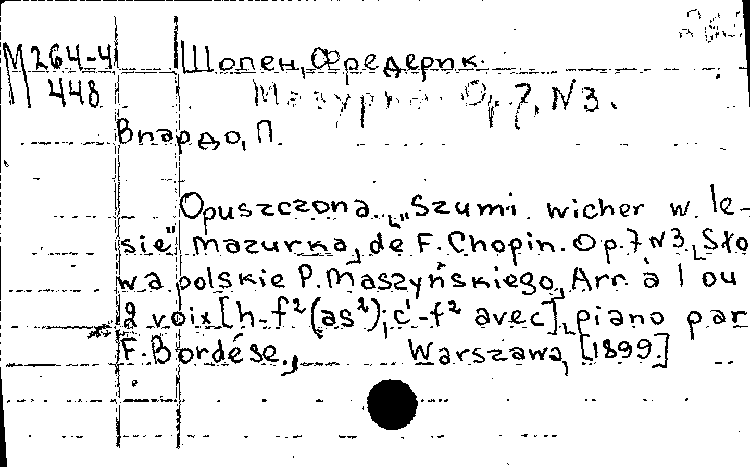 М 264-4 Шопен, Фредерик.
448 Мазурка. Op.7, N3.
Виардо, П.
Opuszczona „Szumi wicher w le-
sie" mazurka, de F. Chopin. Op.7 N3, Sło
wa polskie P. Maszyńskiego, Arr. à 1 ou
2 voix [h-f² (as²); c'-f² avec], piano par
F. Bordése.,     Warszawa, [1899.]